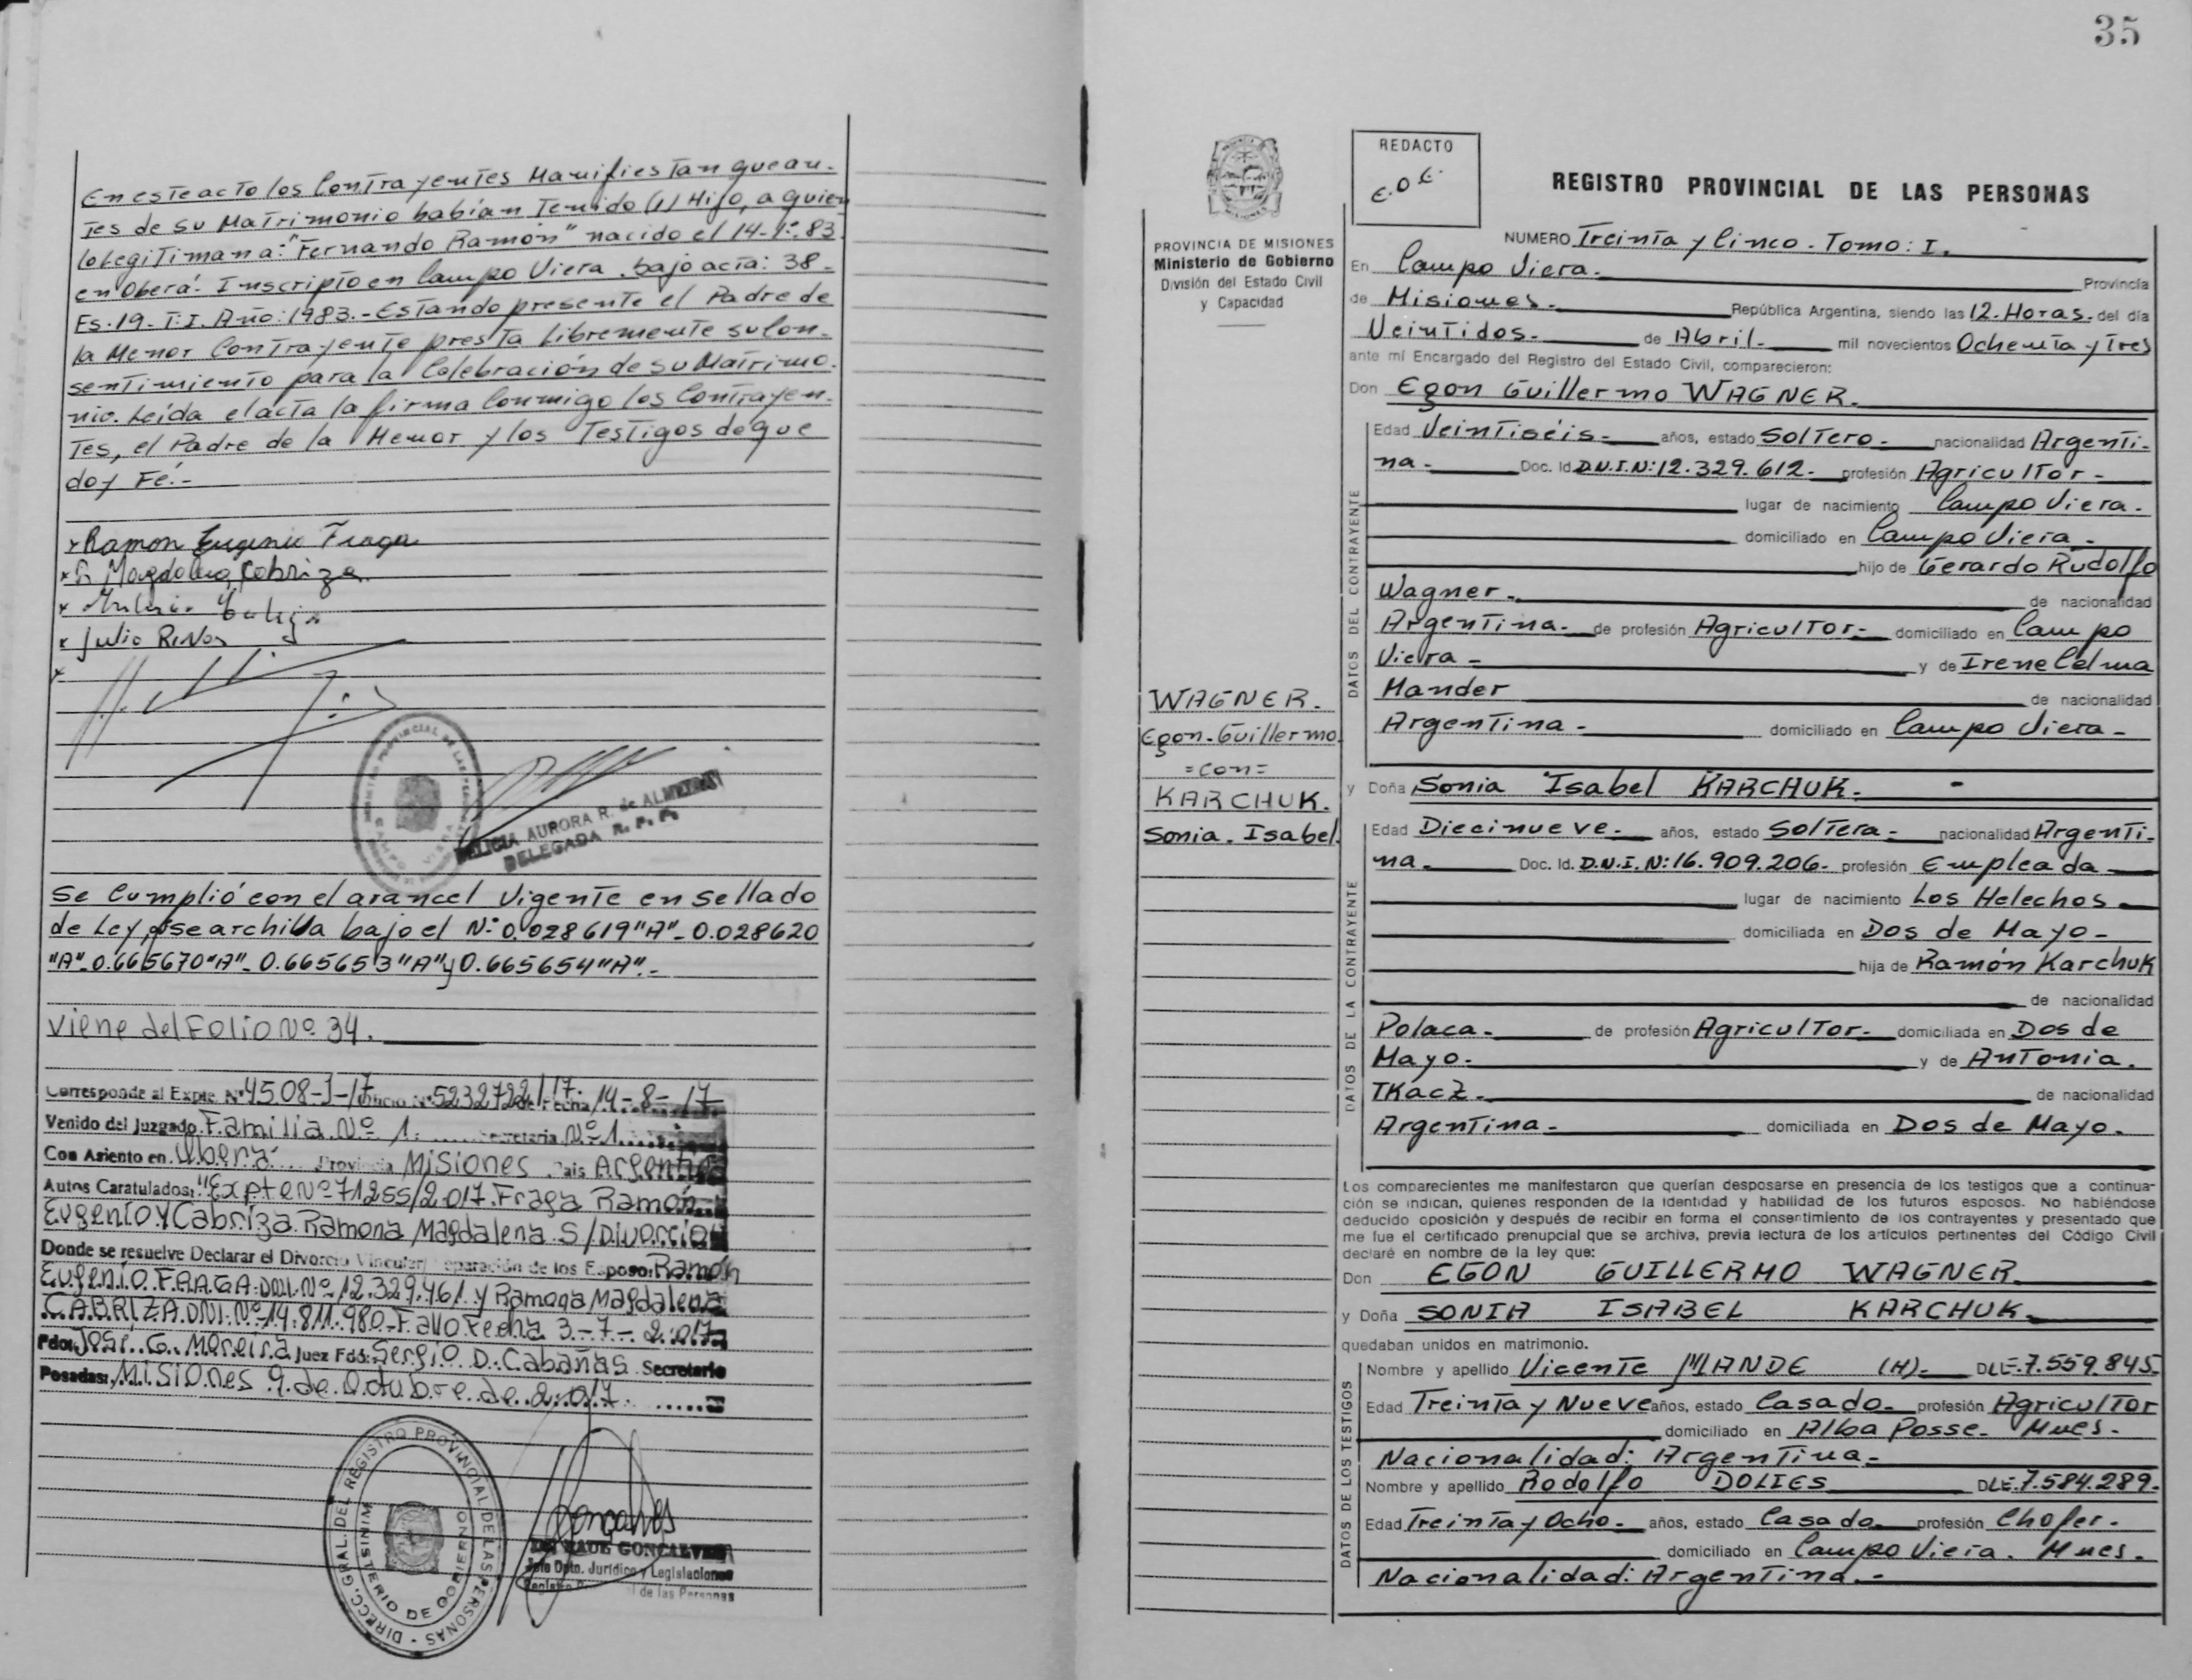 En este acto los Contrayentes Manifiestan que an-
tes de su Matrimonio habían Tenido (1) Hijo, a quien
lo legitiman a: "Fernando Ramón" nacido el 14-1º-83.
en Oberá. Inscripto en Campo Viera. bajo acta: 38-
Es.19- T:I. Año: 1983.- Estando presente el Padre de
la Menor Contrayente presta libremente su Con-
sentimiento para la Celebración de su Matrimo-
nio. Leída el acta la firma Conmigo los Contrayen-
tes, el Padre de la Menor y los Testigos de que
doy Fé.-
x Ramon Eugenio Fraga
x R Magdalena Cabriza
x
x Julio Rivas
x
REGISTRO PROVINCIAL DE LAS PERSONAS
CAMPO VIERA
DELICIA AURORA R. de ALMEIDA
DELEGADA R. P. P.
Se Cumplió con el arancel Vigente en sellado
de Ley, se archiva bajo el Nº 0.028619"A"- 0.028620
"A"- 0.665670"A"- 0.665653"A" y 0.665654"A".-
Viene del Folio Nº 34.
Corresponde al Expte. Nº 4508-J-17 Oficio Nº 5232722/17. de Fecha 14-8-17
Venido del Juzgado Familia Nº 1. Secretaria Nº 1
Con Asiento en Oberá Provincia Misiones Pais Argentina
Autos Caratulados: "Expte Nº 71255/2.017. Fraga Ramón
Eugenio Y Cabriza Ramona Magdalena S/Divorcio
Donde se resuelve Declarar el Divorcio Vincular/Separación de los Esposo: Ramón
Eugenio FRAGA DNI. Nº 12.329.461 y Ramona Magdalena
CABRIZA DNI. Nº 14.811.980- Fallo Fecha 3-7-2.017
Fdo: José. G. Moreira Juez Fdo: Sergio D. Cabañas Secretario
Posadas, Misiones 9 de Octubre de 2.017
DIRECC. GRAL. DEL REGISTRO PROVINCIAL DE LAS PERSONAS
MINISTERIO DE GOBIERNO
Goncalves
RAUL GONCALVES
Jefe Dpto. Jurídico y Legislaciones
de las Personas
35
REDACTO
E.O.E.
REGISTRO PROVINCIAL DE LAS PERSONAS
PROVINCIA DE MISIONES
Ministerio de Gobierno
División del Estado Civil
y Capacidad
NUMERO Treinta y Cinco. Tomo: I.
En Campo Viera. Provincia
de Misiones. República Argentina, siendo las 12. Horas. del día
Veintidos. de Abril. mil novecientos Ochenta y Tres
ante mí Encargado del Registro del Estado Civil, comparecieron:
Don Egon Guillermo WAGNER.
DATOS DEL CONTRAYENTE
Edad Veintiséis- años, estado Soltero- nacionalidad Argenti-
na- Doc. Id. D.N.I.N: 12.329.612- profesión Agricultor-
lugar de nacimiento Campo Viera-
domiciliado en Campo Viera-
hijo de Gerardo Rudolfo
Wagner- de nacionalidad
Argentina- de profesión Agricultor- domiciliado en Campo
Viera- y de Irene Celma
Mander de nacionalidad
Argentina- domiciliado en Campo Viera-
WAGNER.
Egon-Guillermo.
=con=
KARCHUK.
Sonia-Isabel.
y Doña Sonia Isabel KARCHUK.-
DATOS DE LA CONTRAYENTE
Edad Diecinueve- años, estado Soltera- nacionalidad Argenti-
na- Doc. Id. D.N.I. N: 16.909.206- profesión Empleada
lugar de nacimiento Los Helechos
domiciliada en Dos de Mayo-
hija de Ramón Karchuk
de nacionalidad
Polaca- de profesión Agricultor- domiciliada en Dos de
Mayo- y de Antonia.
TKacz- de nacionalidad
Argentina- domiciliada en Dos de Mayo.
Los comparecientes me manifestaron que querían desposarse en presencia de los testigos que a continua-
ción se indican, quienes responden de la identidad y habilidad de los futuros esposos. No habiéndose
deducido oposición y después de recibir en forma el consentimiento de los contrayentes y presentado que
me fue el certificado prenupcial que se archiva, previa lectura de los artículos pertinentes del Código Civil
declaré en nombre de la ley que:
Don EGON GUILLERMO WAGNER
y Doña SONIA ISABEL KARCHUK
quedaban unidos en matrimonio.
DATOS DE LOS TESTIGOS
Nombre y apellido Vicente MANDE (H)- DLE.7.559.845-
Edad Treinta y Nueve años, estado Casado- profesión Agricultor
domiciliado en Alba Posse- Mnes-
Nacionalidad: Argentina-
Nombre y apellido Rodolfo DOLIES DLE.7.584.289-
Edad Treinta y Ocho- años, estado Casado profesión Chofer-
domiciliado en Campo Viera. Mnes-
Nacionalidad: Argentina.-